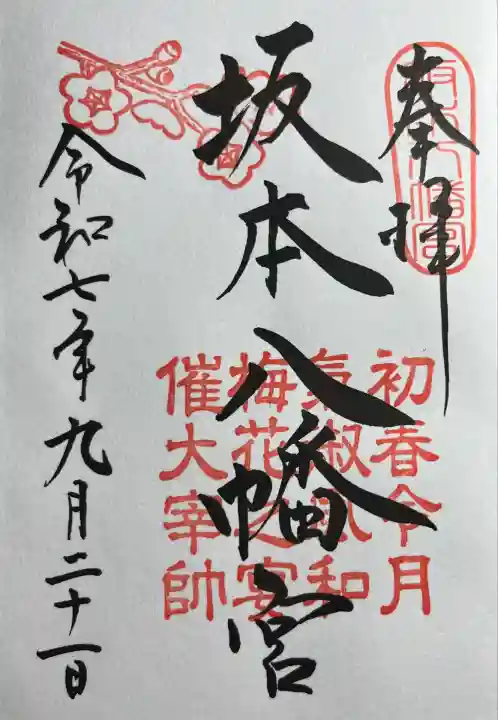 奉拝
坂本八幡宮
坂本八幡宮
初春令月
氣淑風和
梅花之宴
催大宰帥
令和七年九月二十一日